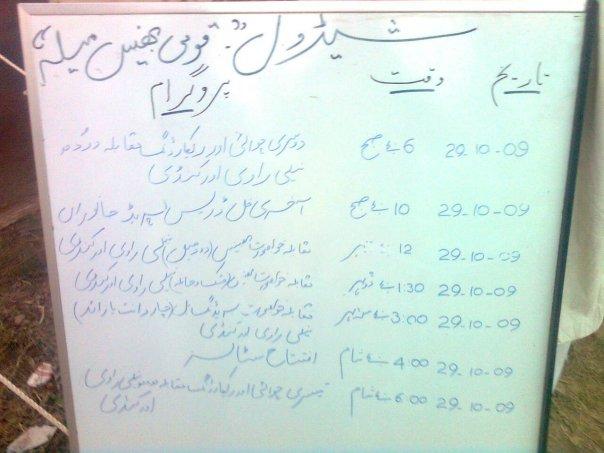 شیڈول "قومی بھینس میلہ"
تاریخ وقت پروگرام
29-10-09 6 بجے صبح دوسری چوائی اور ریکارڈنگ مقابلہ دودھ
نیلی راوی اور کنڈی
29-10-09 10 بجے صبح آخری رل ڈریس پریڈ جانوران
29-10-09 12 بجے مقابلہ خوبصورت بھینس نیلی راوی اور کنڈی
29-10-09 1:30 بجے دوپہر مقابلہ خوبصورت نیلی راوی اور کنڈی
29-10-09 3:00 بجے سہ پہر مقابلہ خوبصورت (چار دانت یا زائد)
نیلی راوی اور کنڈی
29-10-09 4:00 بجے شام افتتاح سٹالز
29-10-09 6:00 بجے شام تیسری چوائی اور ریکارڈنگ مقابلہ نیلی راوی
اور کنڈی